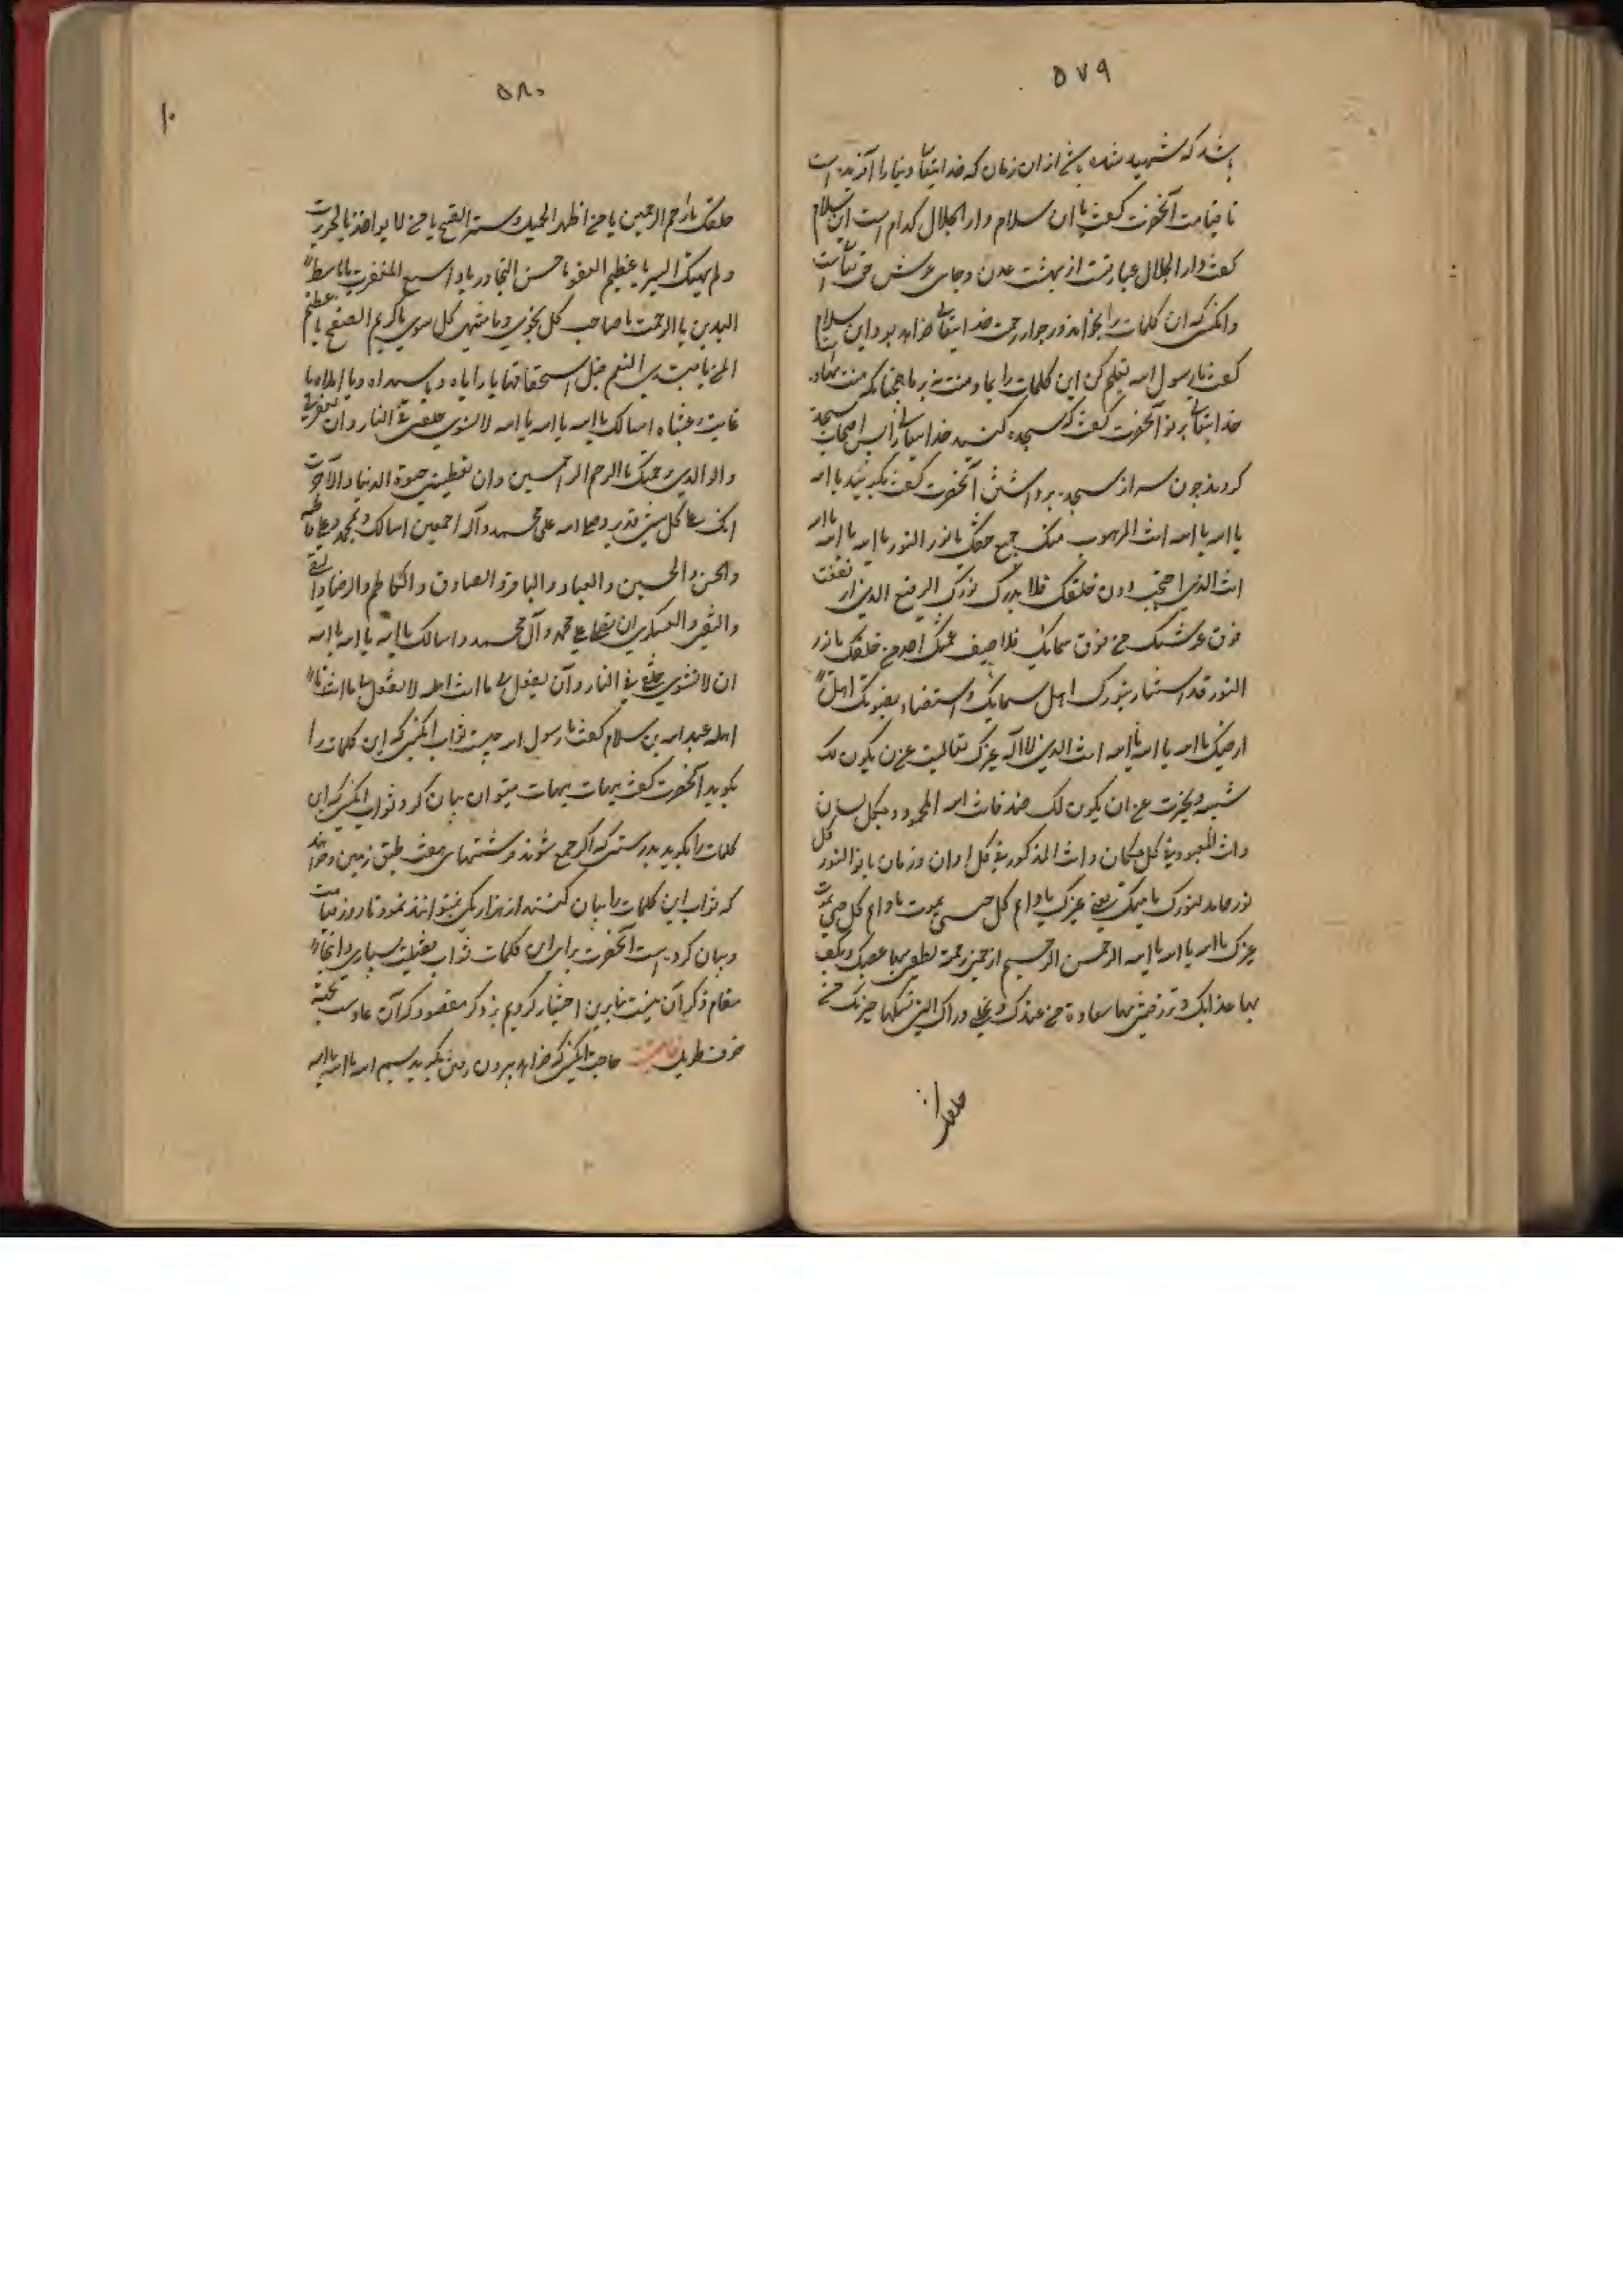 ۵۷۹
باشد که شهید شده باشد از ان زمان که خدایتعالی دنیا را آفریده است
تا قیامت آنحضرت گفت یا ابن سلام دار الجلال کدام است ابن سلام
گفت دار الجلال عبارتست از بهشت عدن و جای عرش حق تعالی است
وانکس که ان کلمات را بخواند در جوار رحمت خدایتعالی خواهد بود ابن سلام
گفت یا رسول الله تعلیم کن این کلمات را بما و منت نه بر ما همچنانکه منت نهاده
خدایتعالی بر تو آنحضرت گفت که سجده کنید خدایتعالی را پس اصحاب سجده
کردند چون سر از سجده برداشتند آنحضرت گفت بگوئید یا الله
یا الله یا الله انت المرهوب منک جمیع خلقک یا نور النور یا الله یا الله یا الله
انت الذی احتجبت دون خلقک فلا یدرک نورک الرفیع الذی ارتفعت
فوق عرشک من فوق سمائک فلا یصف عظمتک احد من خلقک یا نور
النور قد استنار بنورک اهل سمائک و استضاء بضوئک اهل
ارضک یا الله یا الله یا الله انت الذی لا اله غیرک تعالیت عن ان یکون لک
شبیه و تجبرت عن ان یکون لک ضد فانت الله المحمود بکل لسان
وانت المعبود فی کل مکان وانت المذکور فی کل اوان و زمان یا نور النور کل
نور خامد لنورک یا ملیک یفنی غیرک یا دائم کل حی یموت یا دائم کل حی یموت
غیرک یا الله یا الله یا الله الرحمن الرحیم ارحمنی رحمة تطفی بها غضبک و تکف
بها عذابک و ترزقنی بها سعادة من عندک و تحلنی دارک التی تسکنها خیرتک من
خلقک
۵۸۰
۱۰
خلقک یا ارحم الراحمین یا من اظهر الجمیل و ستر القبیح یا من لا یؤاخذ بالجریرة
و لم یهتک الستر یا عظیم العفو یا حسن التجاوز یا واسع المغفرة یا باسط
الیدین بالرحمة یا صاحب کل نجوی و یا منتهی کل شکوی یا کریم الصفح یا عظیم
المن یا مبتدئ النعم قبل استحقاقها یا رباه و یا سیداه و یا املاه یا
غایت رغبتاه اسالک یا الله یا الله یا الله لا تشوی خلقی فی النار و ان تغفر لی
ولوالدی رحمتک یا ارحم الراحمین و ان تعطینی خیرة الدنیا و الآخرة
انک علی کل شیء قدیر و صلی الله علی محمد و آله اجمعین اسالک بمحمد و علی و فاطمه
والحسن والحسین والعباد والباقر و الصادق و الکاظم و الرضا و التقی
والنقی والعسکری ان تصلی علی محمد و آل محمد و اسالک یا الله یا الله یا الله
ان لا تشوی خلقی فی النار و آن تفعل بی ما انت اهله لا تفعل بنا ما انت
اهله عبد الله بن سلام گفت یا رسول الله چیست ثواب انکس که این کلمات را
بگوید آنحضرت گفت هیهات هیهات میتوان بیان کرد ثواب انکس که این
کلمات را بگوید بدرستی که اگر جمع شوند فرشتهای هفت طبق زمین و خواهند
که ثواب این کلمات را بیان کنند از هزار یکی نتوانند نمود تا روز قیامت
و بیان کرده است آنحضرت برای این کلمات ثواب فضیلت بسیاری و اینجا
مقام ذکر آن نیست بنابرین اختیار کردیم بذکر مقصود که آن عاریست
خوف طریق حاجت انکس که خواهد بیرون رفتن بگوید بسم الله یا الله یا الله